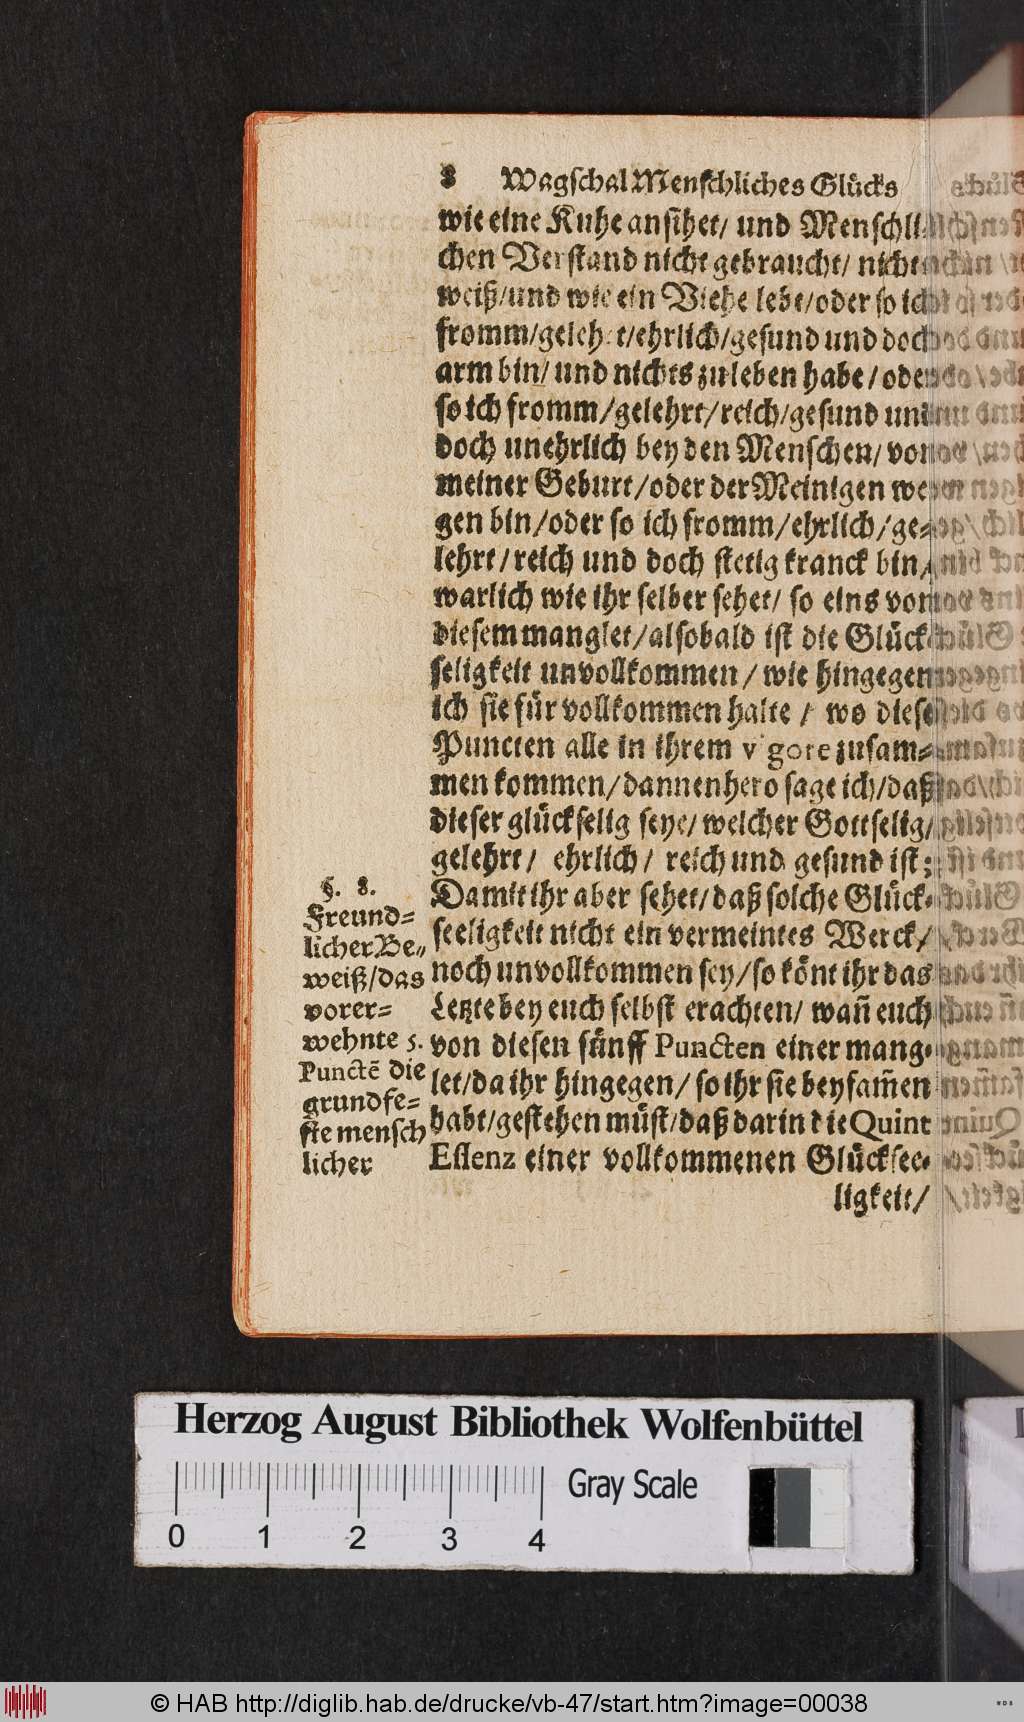 8 Wagschal Menschliches Glücks
wie eine Kuhe ansihet/ und Menschli-
chen Verstand nicht gebraucht/ nicht
weiß/und wie ein Viehe lebt/oder so ich
fromm/geleh t/ehrlich/gesund und doch
arm bin/ und nichts zu leben habe/oder
so ich fromm/gelehrt/reich/gesund und
doch unehrlich bey den Menschen/ von
meiner Geburt/oder der Meinigen we-
gen bin/oder so ich fromm/ehrlich/ge-
lehrt/reich und doch stetig kranck bin/
warlich wie ihr selber sehet/ so eins von
diesem manglet/alsobald ist die Glück-
seligkeit unvollkommen/ wie hingegen
ich sie für vollkommen halte/ wo diese
Puncten alle in ihrem vigore zusam-
men kommen/dannenhero sage ich/daß
dieser glückselig seye/ welcher Gottselig/
gelehrt/ ehrlich/ reich und gesund ist;
Damit ihr aber sehet/daß solche Glück-
seeligkeit nicht ein vermeintes Werck/
noch unvollkommen sey/so könt ihr das
Letzte bey euch selbst erachten/ wañ euch
von diesen fünff Puncten einer mang-
let/da ihr hingegen/ so ihr sie beysam̃en
habt/gestehen müst/daß darin die Quint
Essenz einer vollkommenen Glücksee-
ligkeit/
§. 8.
Freund-
licher Be-
weiß/das
vorer-
wehnte 5.
Punctē die
grundfe-
ste mensch
licher
Herzog August Bibliothek Wolfenbüttel
0 1 2 3 4
Gray Scale
© HAB http://diglib.hab.de/drucke/vb-47/start.htm?image=00038